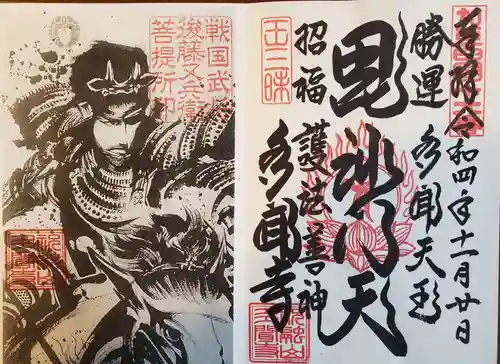 奉拝 令和四年十一月廿日
勝運 多聞天
毘沙門天
招福 護法善神
多聞寺
王三昧
戦国武将
後藤又兵衛
菩提所印